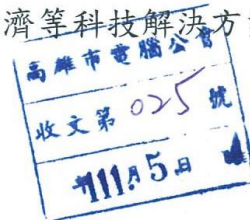 濟等科技解決方
高雄市電腦公會
收文第 025 號
111.5.